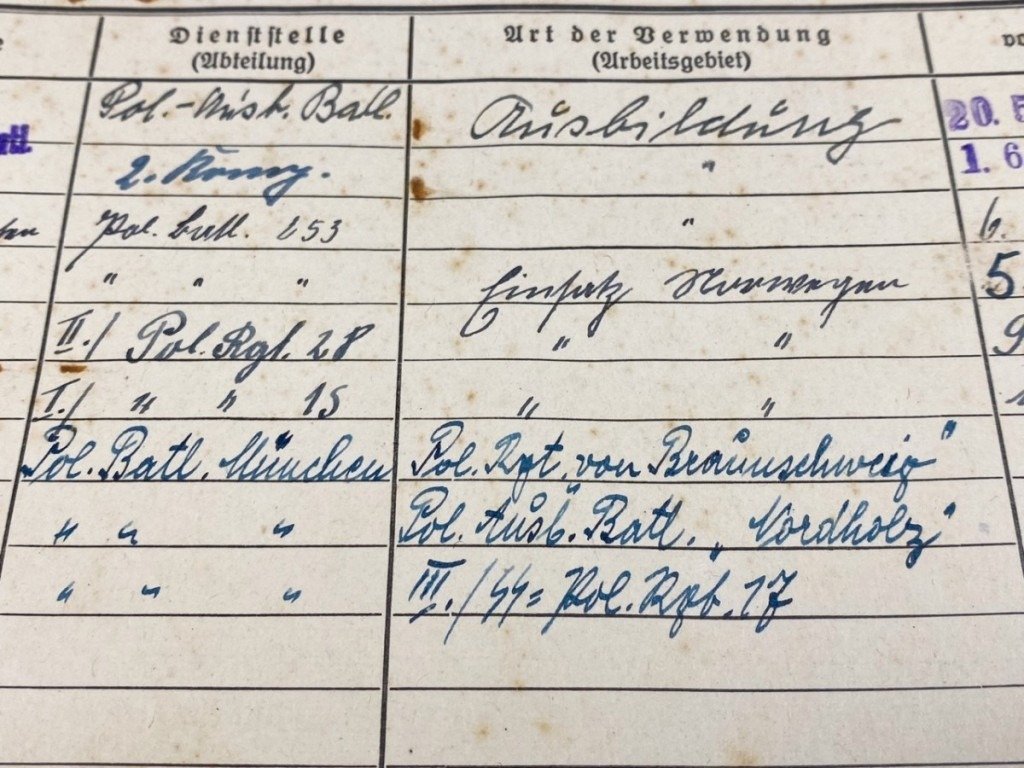 Dienststelle Art der Verwendung
(Abteilung) (Arbeitsgebiet)
Pol.-Ausb. Batl. Ausbildung 20. 5
2. Komp. " 1. 6
Pol. Batl. 253 " 6.
" " " Einsatz Norwegen 5
II./ Pol. Rgt. 28 " " 9
I./ " " 15 " "
Pol. Batl. München Pol. Rgt. „von Braunschweig"
" " " Pol. Ausb. Batl. „Nordholz"
" " " III./SS= Pol. Rgt. 17